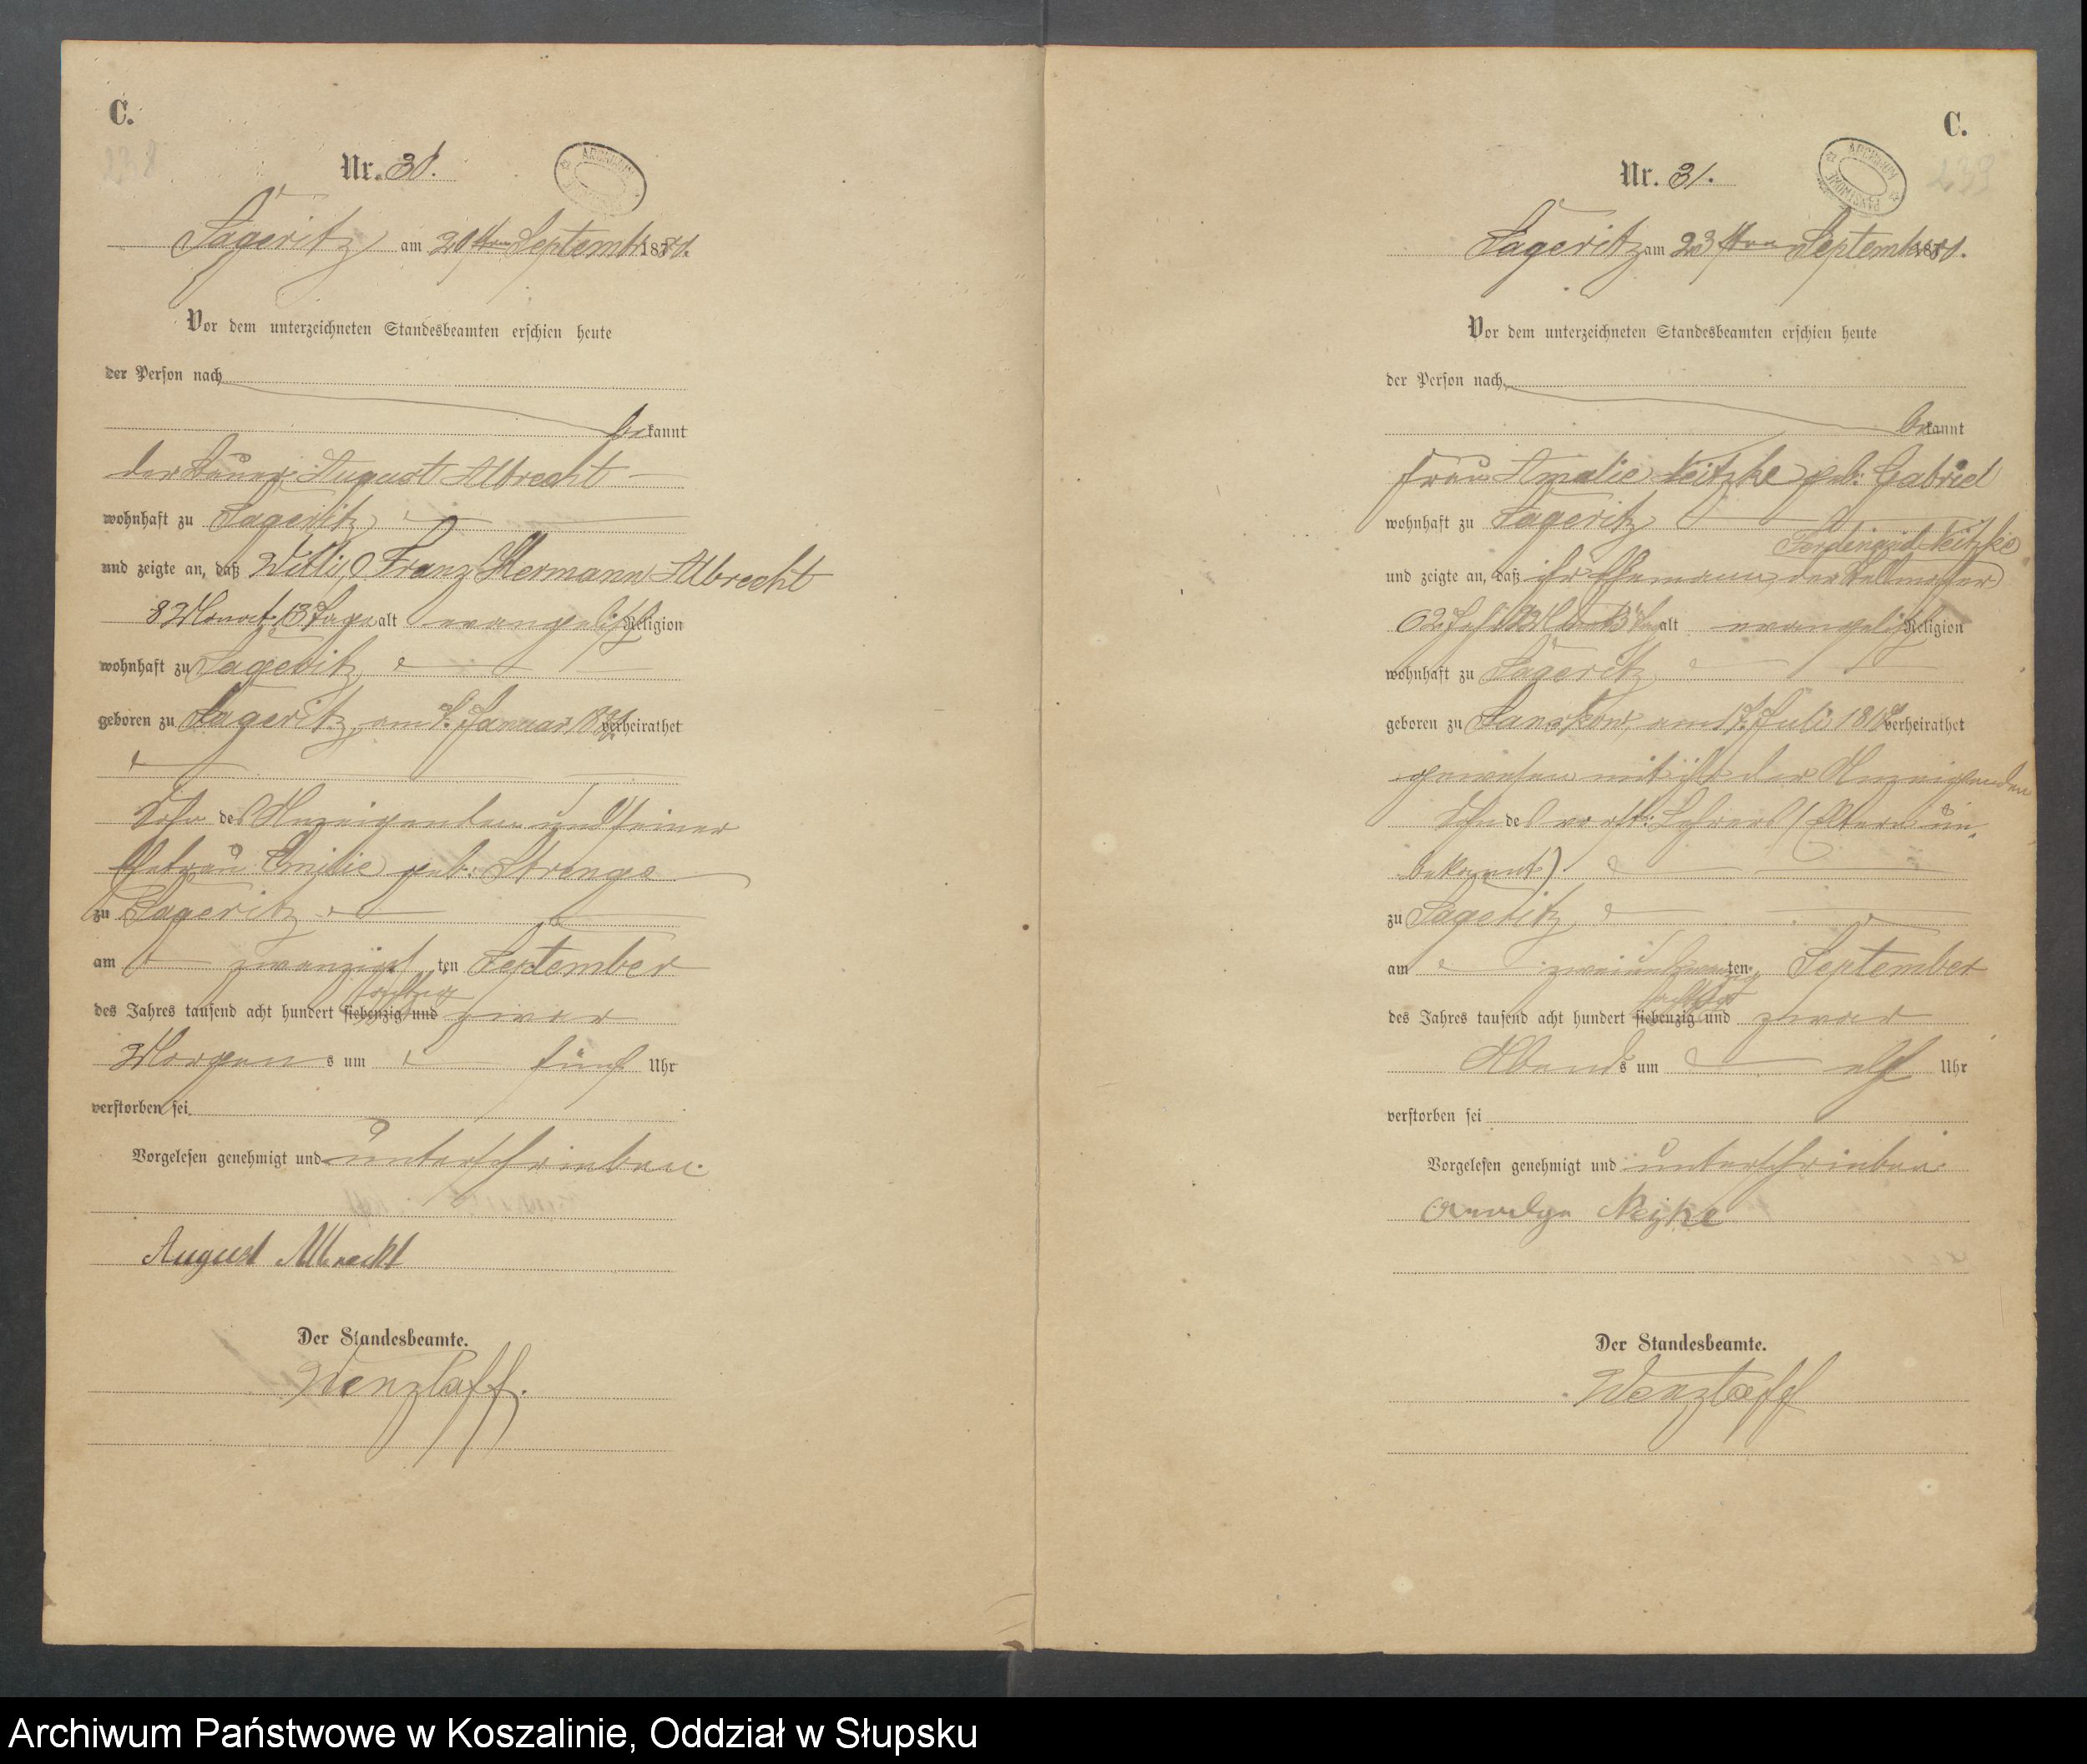 C.
Nr. 30.
Sageritz am 20ten September 1880.
Vor dem unterzeichneten Standesbeamten erschien heute
der Person nach
bekannt
der Bauer August Albrecht
wohnhaft zu Sageritz
und zeigte an, daß Willi Franz Hermann Albrecht
8 Monat 13 Tage alt evangelisch Religion
wohnhaft zu Sageritz
geboren zu Sageritz, am 7. Januar 1880 verheirathet
Sohn des Anzeigenden und seiner
Ehefrau Emilie geb: Strenge
zu Sageritz
am zwanzigsten September
achtzig
des Jahres tausend acht hundert siebenzig und zwar
Morgens um fünf Uhr
verstorben sei
Vorgelesen genehmigt und unterschrieben.
August Albrecht
Der Standesbeamte.
Wenzlaff.
C.
239
Nr. 31.
Sageritz am 23ten September 1880.
Vor dem unterzeichneten Standesbeamten erschien heute
der Person nach
bekannt
Frau Amalie Neitzke geb: Gabriel
wohnhaft zu Sageritz
Ferdinand Neitzke
und zeigte an, daß ihr Ehemann, der Stellmacher
62 Jahr 2 Monat alt evangelisch Religion
wohnhaft zu Sageritz
geboren zu am 7. Juli 1818 verheirathet
gewesen mit ihr der Anzeigenden
Sohn des verst: Lehrers (Eltern un-
bekannt)
zu Sageritz
am zweiundzwanzigten September
achtzig
des Jahres tausend acht hundert siebenzig und zwar
Abends um elf Uhr
verstorben sei
Vorgelesen genehmigt und unterschrieben.
Der Standesbeamte.
Wenzlaff
Archiwum Państwowe w Koszalinie, Oddział w Słupsku